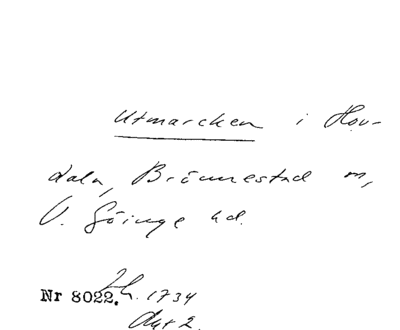 Utmarcken i Hov-
dala, Brönnestad sn,
V. Göinge hd.
Nr 8022. Jb. 1734
Akt 2.